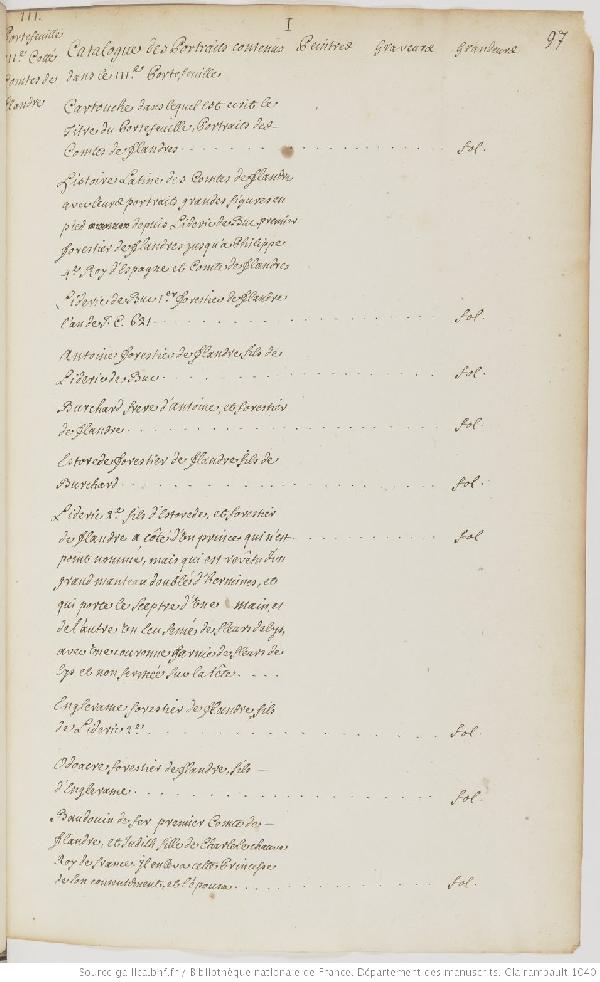 III.
I
97
Portefeuille
III.e Cotté
Comtes de
flandre
Catalogue des Portraits contenus Peintres Graveurs Grandeurs
dans le III.e Portefeuille
Cartouche dans lequel est ecrit le
Titre du Portefeuille, Portraits des
Comtes de flandres fol.
Histoire Latine des Comtes de flandre
avec leurs portraits grandes figures en
pied depuis Lideric de Buc premier
forestier de flandres jusqu'a Philippe
4.e Roy d'Espagne et Comte de flandres
Lideric de Buc 1.er forestier de flandre
l'an de J. C. 621 fol.
Antoine forestier de flandre, fils de
Lideric de Buc fol.
Burchard frere d'antoine, et forestier
de flandre fol.
Estorede forestier de flandre, fils de
Burchard fol.
Lideric 2.e fils d'Estorede, et forestier
de flandre a côté d'un prince qui n'est fol
point nommé, mais qui est revêtu d'un
grand manteau doublé d'Hermines, et
qui porte le sceptre d'une main, et
de l'autre un ecu semé de fleurs de lys,
avec une couronne garnie de fleurs de
lys et non fermée sur la tête
Englerame forestier de flandre, fils
de Lideric 2.e fol.
Odoacre, forestier de flandre, fils
d'Englerame fol.
Baudouin de fer premier Comte de
flandre, et Judith fille de Charles le chauve
Roy de france. Il enleva cette Princesse
de son consentement, et l'epousa fol.
Source gallica.bnf.fr / Bibliothèque nationale de France. Département des manuscrits. Clairambault 1040